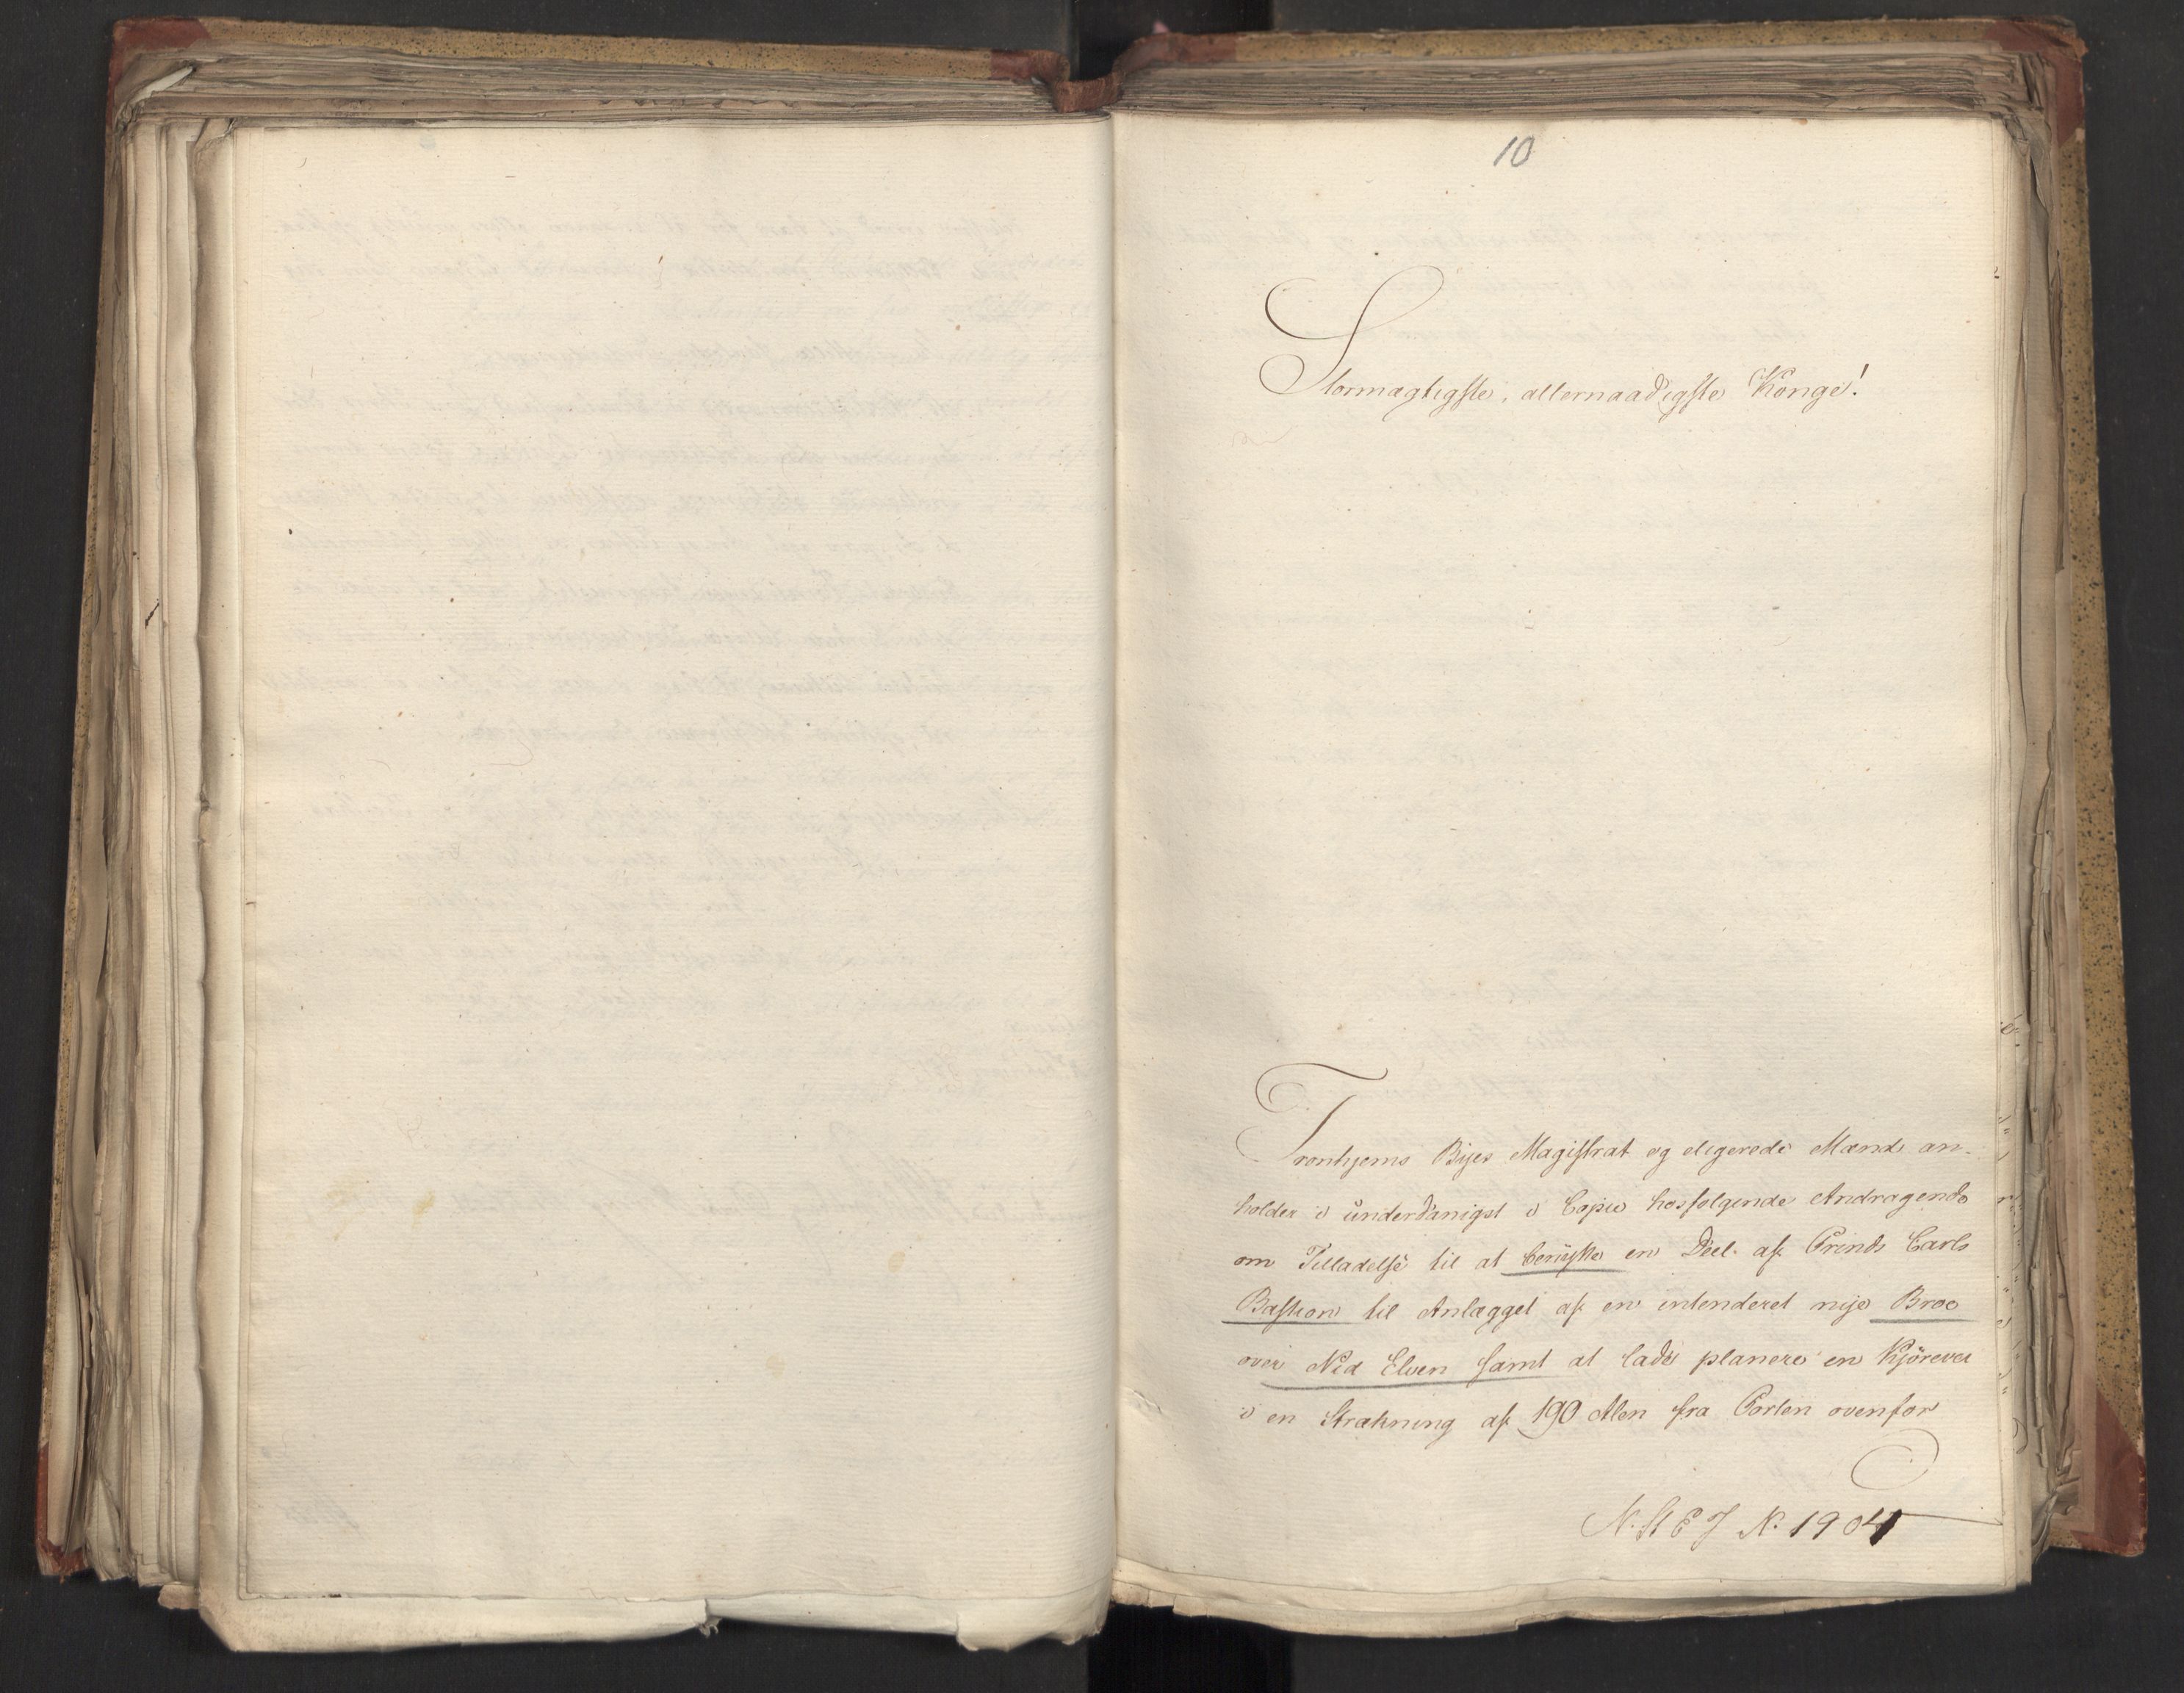 10
Stormægtigste, allernaadigste Konge!
Tronhjems Byes Magistrat og eligerede Mænd an-
holder i underdanigst i Copie hosfølgende Andragende
om Tilladelse til at benytte en Deel af Prinds Carls
Bastion til Anlægget af en intenderet nye Broe
over Nid Elven samt at lade planere en Kjørevei
i en Strækning af 190 Alen fra Porten ovenfor
N. 1904